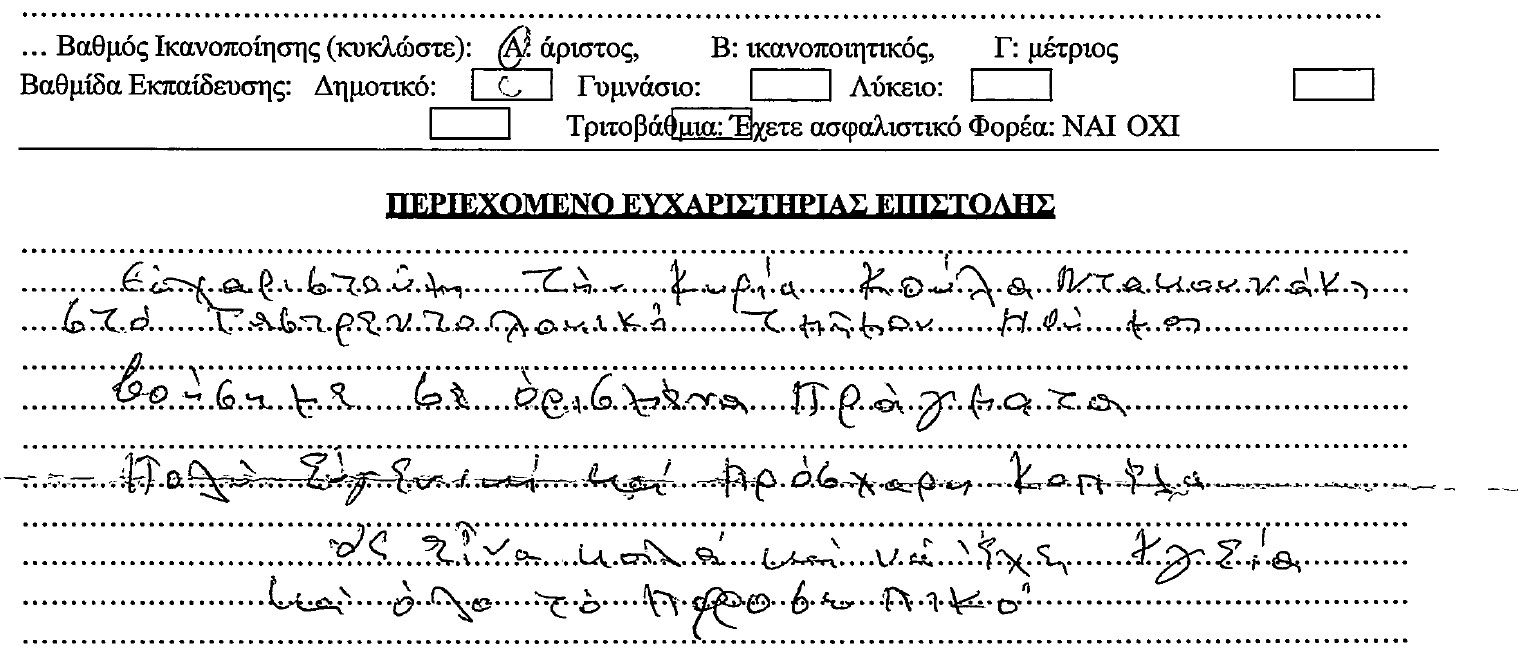 ... Βαθμός Ικανοποίησης (κυκλώστε): Α: άριστος, Β: ικανοποιητικός, Γ: μέτριος
Βαθμίδα Εκπαίδευσης: Δημοτικό: Γυμνάσιο: Λύκειο:
Τριτοβάθμια: Έχετε ασφαλιστικό Φορέα: ΝΑΙ ΟΧΙ
ΠΕΡΙΕΧΟΜΕΝΟ ΕΥΧΑΡΙΣΤΗΡΙΑΣ ΕΠΙΣΤΟΛΗΣ
τὴν Κυρία Κούλα
στό Γαστρεντολογικό τμῆμαν Πού με
βοήσησε σε ὁρισμένα Πράγματα
Πολύ Εὐγενική καί πρόσχαρη Κοπέλα
ἄς εἶνα καλά καί νά ἔχη ὑγεία
καί όλο τό